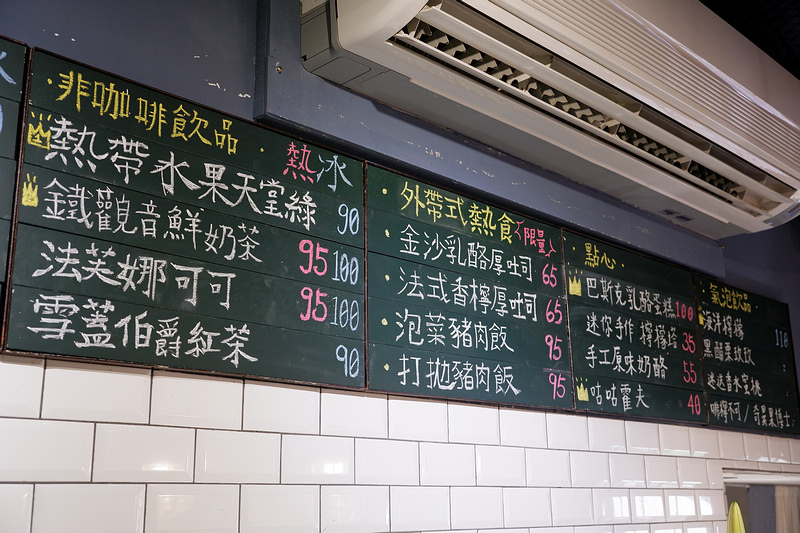 非咖啡飲品 熱 冰
熱帶水果天堂綠 90
鐵觀音鮮奶茶 95 100
法芙娜可可 95 100
雪蓋伯爵紅茶 90
外帶式熱食<限量>
金沙乳酪厚吐司 65
法式香檸厚吐司 65
泡菜豬肉飯 95
打拋豬肉飯 95
點心
巴斯克乳酪蛋糕 100
迷你手作檸檬塔 35
手工原味奶酪 55
咕咕霍夫 40
氣泡飲品
海漬檸檬 110
黑醋栗玫玫
迷迭香水蜜桃
咖檸不可/奇異果博士